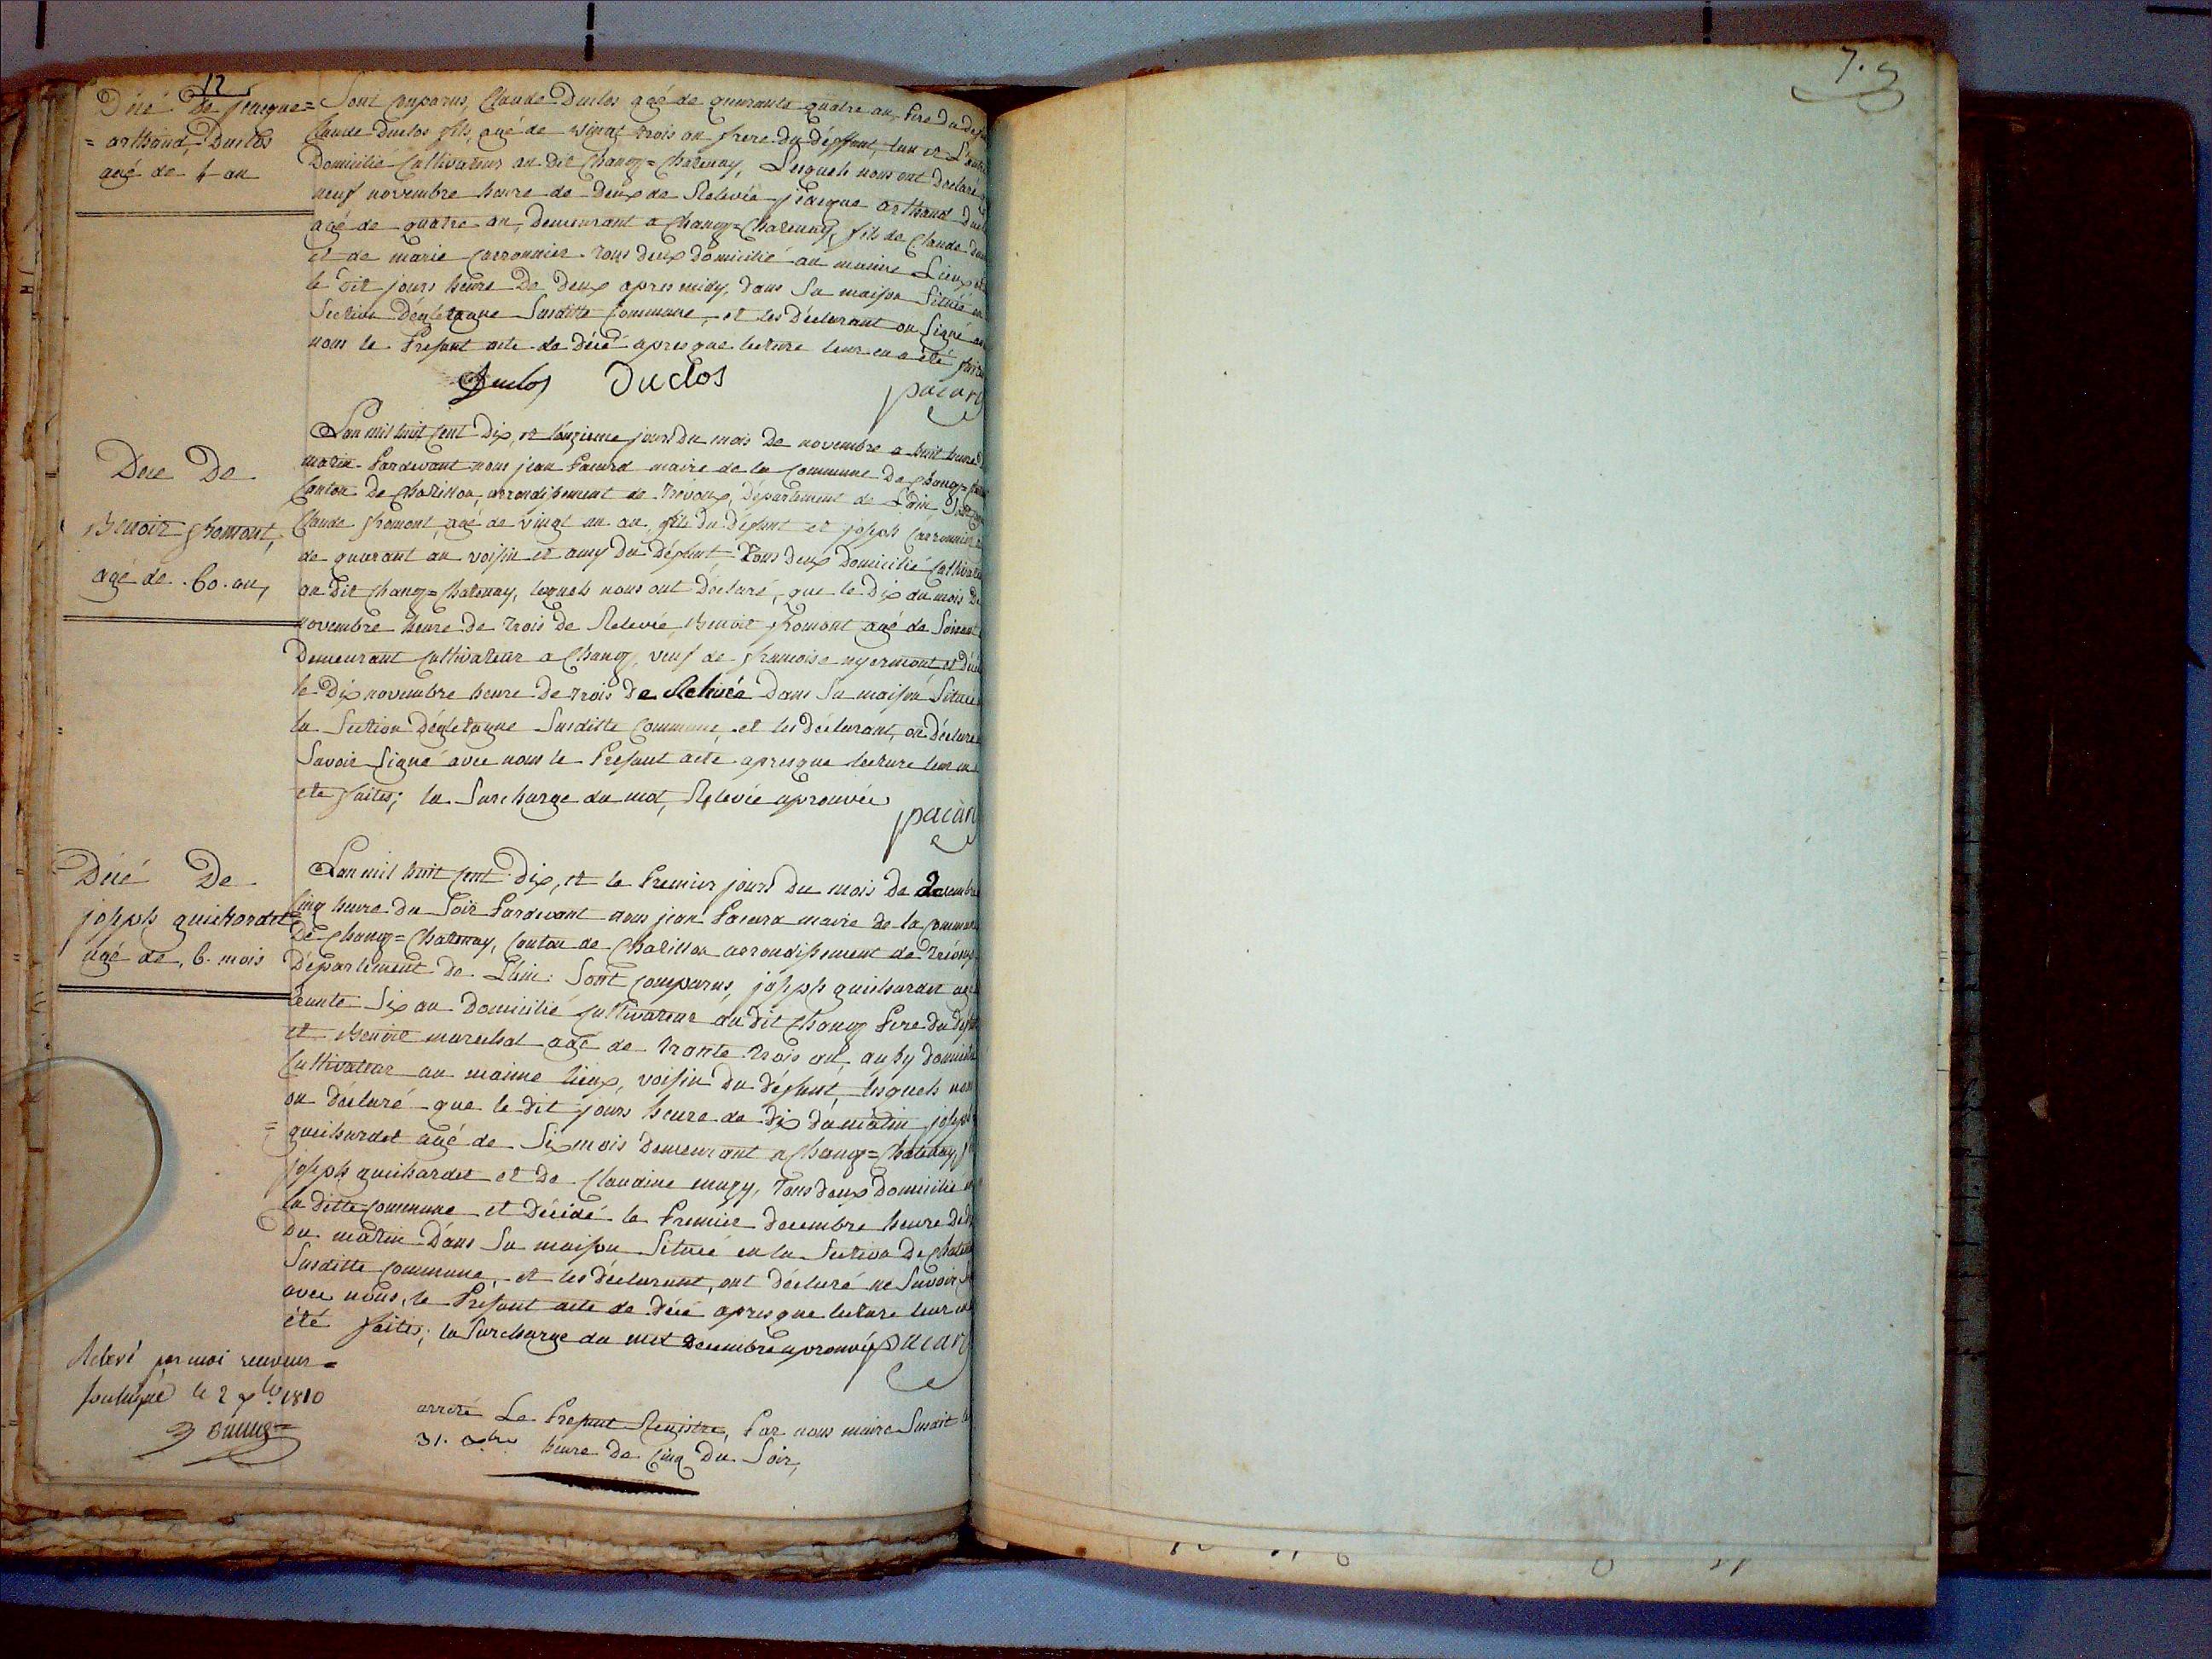 12
Décé de jêacque=
= arthaud, Duclos
agé de 4 an
Sont comparus, Claude Duclos agé de quarante quatre an, Pere du
Claude Duclos fils, agé de vingt trois an frere du déffunt, lun et L'autre
Domicilié Cultivateur au dit Chanoz=Chatenay, Lesquels nous ont Déclaré
neuf novembre heure de deux de Relevée jêacque arthaud
agé de quatre an, demeurant a Chanoz=Chatenay, fils de Claude
et de marie Carronnier tous deux domicilié au maime Lieux
le dit jours heure De deux apres midy, dans sa maison Située en
Section Déglétagne Susditte Commune, et les Déclarant on Signé
nous le Présant acte de décé apres que lecture leur en a été faite
Duclos Duclos
pacard
Décé De
Benoit fromont,
agé de .60. an,
Lan mil huit Cent Dix, et lonzieme jours du mois De novembre a huit heure
matin Pardevant nous jean Pacard maire de la Commune De Chanoz=
Canton De Chatillon, arrondissement de Trévoux, Département de Lain
Claude fromont, agé de vingt un an, fils du Défunt et joseph Carronnier
de quarant an voisin et amy du Défunt, Tous deux domicilié Cultivateur
au Dit Chanoz=Chatenay, lesquels nous ont Déclaré, que le Dix du mois De
novembre heure De Trois De Relevée, Benoit fromont agé de Soixante
Demeurant Cultivateur a Chanoz, veuf de francoise et
le Dix novembre heure De trois De Relevée Dans sa maison Située
la Section Déglétagne Susditte Commune, et les déclarant, on Déclaré
Savoir Signé avec nous le Présant acte apres que lecture leur en
été faites; la Surcharge du mot, Relevée aprouvée
pacard
Décé De
joseph guichardet
agé de, 6. mois
Lan mil huit Cent Dix, et le Premier jours Du mois De Decembre
Cinq heure du Soir Pardevant nous jean Pacard maire de la Commune
De Chanoz=Chatenay, Canton de Chatillon arrondissement de Trévoux
Département de Lain: Sont Comparus, joseph guichardet agé
trente Six an Domicilié Cultivateur au dit Chanoz Pere du
et Benoit marechal agé de trante trois an, aussy domicilié
Cultivateur au maime lieux, voisin du défunt, lesquels nous
on déclaré que le dit jours heure de dix du matin joseph
= guichardet agé de Six mois demeurant a Chanoz=Chatenay,
joseph guichardet et de Claudine Tous deux Domicilié
la ditte Commune et décédé le Premier decembre heure De
du matin Dans Sa maison Située en la Section De
Susditte Commune, et les déclarant, ont déclaré ne Savoir
avec nous, le Présant acte de décé apres que lecture leur en
été faites; la Surcharge du mot Decembre aprouvée pacard
Relevé par moi receveur =
soussigné le 2 1810
arrété Le Présant Registre, Par nous maire Susdit
31. Xbre heure De Cinq Du Soir,
7.